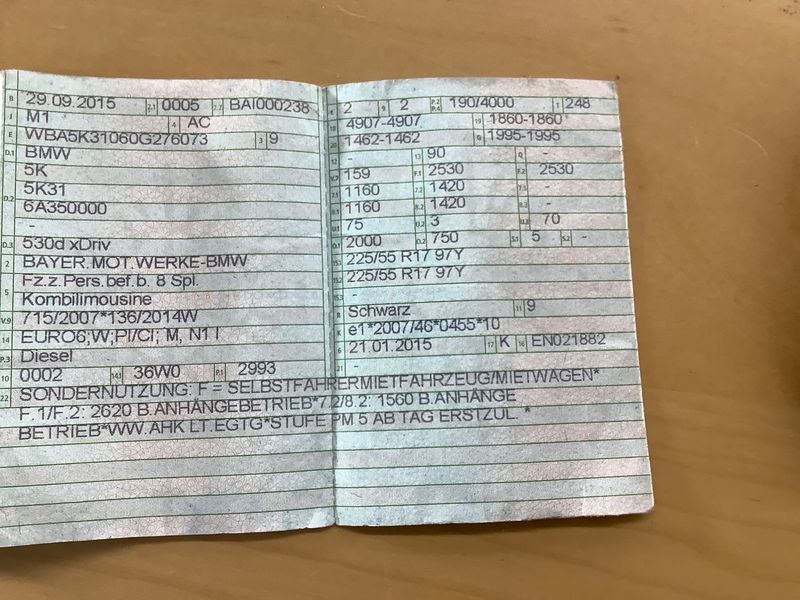 B 29.09.2015 2.1 0005 2.2 BAI000238
J M1 4 AC
E WBA5K31060G276073 3 9
D.1 BMW
5K
D.2 5K31
6A350000
-
D.3 530d xDriv
2 BAYER.MOT.WERKE-BMW
5 Fz.z.Pers.bef.b. 8 Spl.
Kombilimousine
V.9 715/2007*136/2014W
14 EURO6;W;PI/CI; M, N1 I
P.3 Diesel
10 0002 14.1 36W0 P.1 2993
22 SONDERNUTZUNG: F = SELBSTFAHRERMIETFAHRZEUG/MIETWAGEN*
F.1/F.2: 2620 B.ANHÄNGEBETRIEB*7.2/8.2: 1560 B.ANHÄNGE
BETRIEB*WW.AHK LT.EGTG*STUFE PM 5 AB TAG ERSTZUL. *
2 9 2 P.2 P.4 190/4000 T 248
18 4907-4907 19 1860-1860
20 1462-1462 G 1995-1995
12 - 13 90 Q -
V.7 159 F.1 2530 F.2 2530
7.1 1160 7.2 1420 7.3 -
8.1 1160 8.2 1420 8.3 -
U.1 75 U.2 3 U.3 70
O.1 2000 O.2 750 S.1 5 S.2 -
15.1 225/55 R17 97Y
15.2 225/55 R17 97Y
15.3 -
R Schwarz 11 9
K e1*2007/46*0455*10
6 21.01.2015 17 K 16 EN021882
21 -